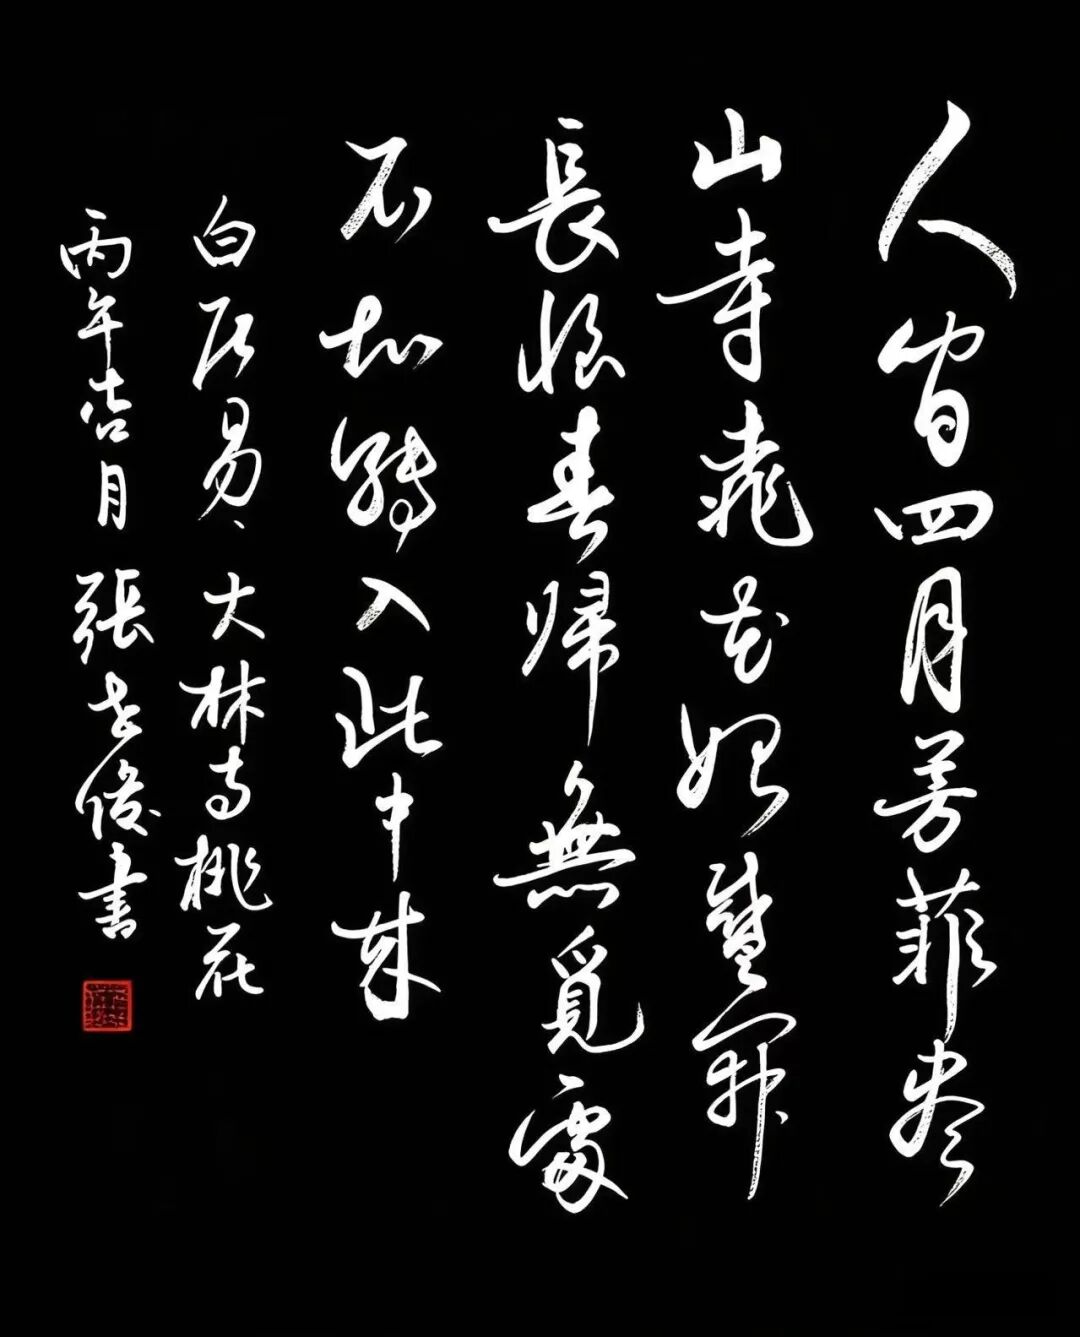 人間四月芳菲盡
山寺桃花始盛開
長恨春歸無覓處
不知轉入此中來
白居易、大林寺桃花
丙午吉月 張俊書